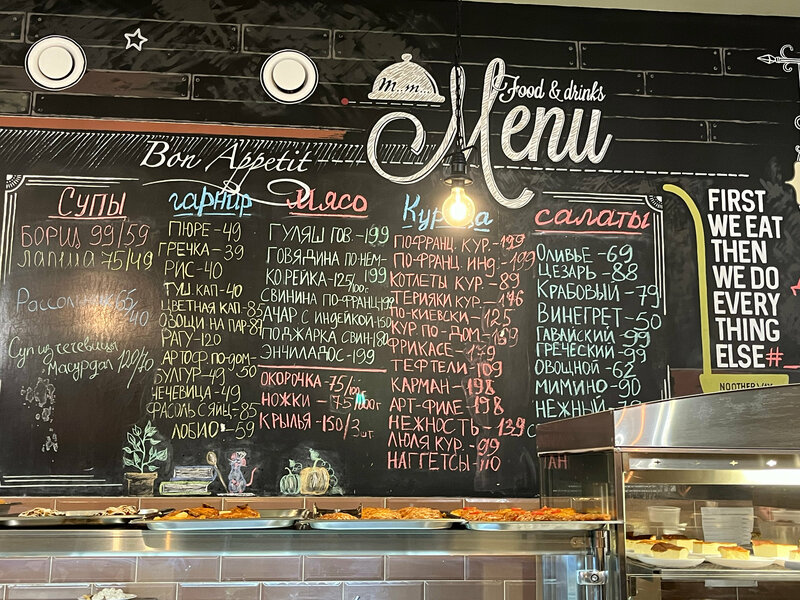 m...m...
Food & drinks
Menu
Bon Appetit
Супы
БОРЩ 99/59
ЛАПША 75/49
Рассольник 65/40
Суп из чечевицы
Масурдал 120/40
гарнир
ПЮРЕ-49
ГРЕЧКА-39
РИС-40
ТУШ.КАП-40
ЦВЕТНАЯ КАП-85
ОВОЩИ НА ПАР-89
РАГУ-120
АРТОФ ПО-ДОМ-
БУЛГУР-49-50
ЧЕЧЕВИЦА-49
ФАСОЛЬ С ЯЙЦ-85
ЛОБИО-59
МЯСО
ГУЛЯШ ГОВ.-199
ГОВЯДИНА ПО-НЕМ-199
КОРЕЙКА-125/100г.
СВИНИНА ПО-ФРАНЦ-199
АЧАР С ИНДЕЙКОЙ-150
ПОДЖАРКА СВИН-180
ЭНЧИЛАДОС-199
ОКОРОЧКА-75/100г
НОЖКИ-75/100г
КРЫЛЬЯ-150/3шт
Курица
ПО-ФРАНЦ. КУР.-199
ПО-ФРАНЦ. ИНД.-199
КОТЛЕТЫ КУР-89
ТЕРИЯКИ КУР-176
ПО-КИЕВСКИ-125
КУР ПО-ДОМ-139
ФРИКАСЕ-179
ТЕФТЕЛИ-109
КАРМАН-198
АРТ-ФИЛЕ-198
НЕЖНОСТЬ-139
ЛЮЛЯ КУР.-99
НАГГЕТСЫ-110
САЛАТЫ
ОЛИВЬЕ-69
ЦЕЗАРЬ-88
КРАБОВЫЙ-79
ВИНЕГРЕТ-50
ГАВАЙСКИЙ-99
ГРЕЧЕСКИЙ-99
ОВОЩНОЙ-62
МИМИНО-90
НЕЖНЫЙ
FIRST
WE EAT
THEN
WE DO
EVERY
THING
ELSE#
NOOTHERWAY